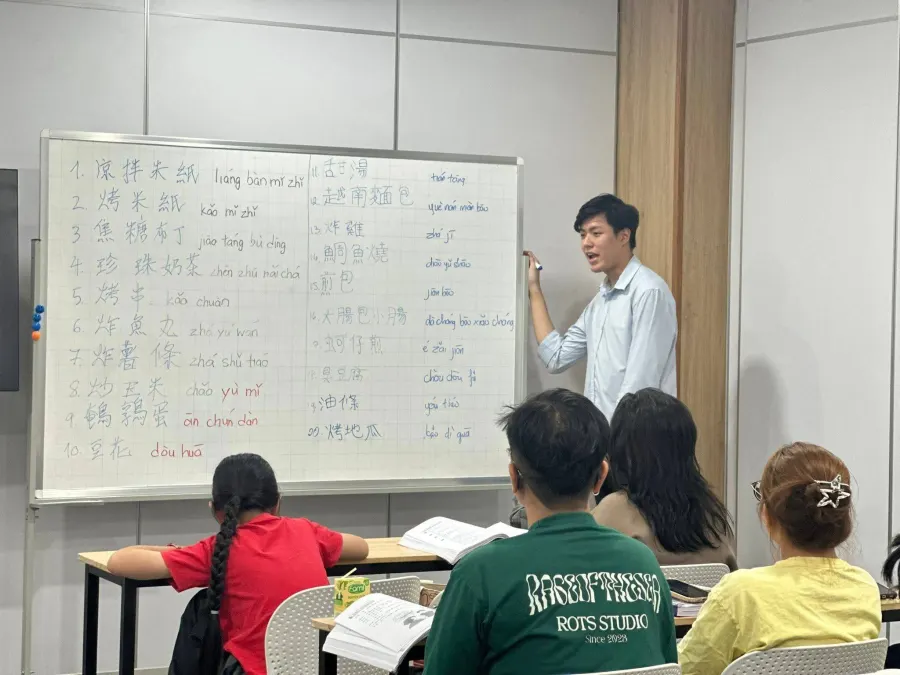 1. 涼拌米紙 liáng bàn mǐ zhǐ
2. 烤米紙 kǎo mǐ zhǐ
3 焦糖布丁 jiāo táng bù dīng
4. 珍珠奶茶 zhēn zhū nǎi chá
5. 烤串 kǎo chuàn
6. 炸魚丸 zhá yú wán
7. 炸薯條 zhá shǔ tiáo
8. 炒玉米 chǎo yù mǐ
9. 鵪鶉蛋 ān chún dàn
10. 豆花 dòu huā
11. 甜湯 tián tāng
12. 越南麵包 yuè nán miàn bāo
13. 炸雞 zhá jī
14. 鯛魚燒
15. 煎包 jiān bāo
16. 大腸包小腸 dà cháng bāo xiǎo cháng
蚵仔煎 é zǎi jiān
臭豆腐 chòu dòu fǔ
19. 油條 yóu tiáo
20. 烤地瓜 kǎo dì guā
ROTS STUDIO
Since 2023